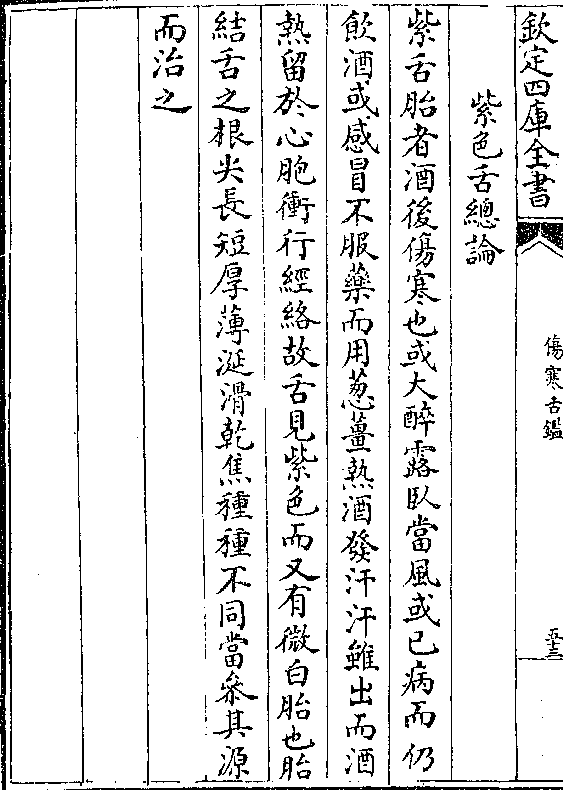 欽定四庫全書
傷寒舌鑑
五十三
紫色舌總論
紫舌胎者酒後傷寒也或大醉露臥當風或已病而仍
飲酒或感冒不服藥而用葱薑熱酒發汗汗雖出而酒
熱留於心胞衝行經絡故舌見紫色而又有微白胎也胎
結舌之根尖長短厚薄涎滑乾焦種種不同當叅其源
而治之